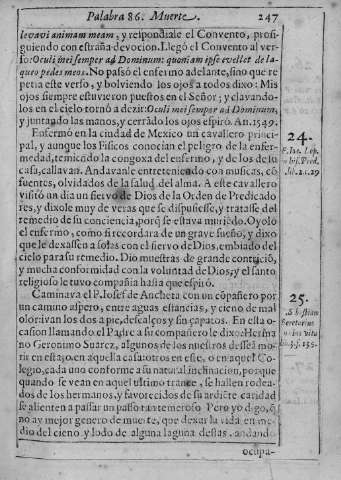 Palabra 86. Muerte. 247
levavi animam meam, y respondiale el Convento, prosi-
guiendo con estraña devocion. Llegò el Convento al ver-
so: Oculi mei semper ad Dominum: quoniam ipse evellet de la-
queo pedes meos. No passò el enfermo adelante, sino que re
petia este verso, y bolviendo los ojos a todos dixo: Mis
ojos siempre estuvieron puestos en el Señor; y clavando-
los en el cielo tornò a dezir: Oculi mei semper ad Dominum,
y juntando las manos, y cerrãdo los ojos espirò. An. 1549.
Enfermò en la ciudad de Mexico un cavallero princi-
pal, y aunque los Fisicos conocian el peligro de la enfer-
medad, temiendo la congoxa del enfermo, y de los de su
casa, callavan. Andavanle entreteniendo con musicas, cõ
fuentes, olvidados de la salud del alma. A este cavallero
visitò un dia un siervo de Dios de la Orden de Predicado
res, y dixole muy de veras que se dispusiesse, y tratasse del
remedio de su conciencia, porq̃ se estava muriẽdo. Oyolo
el enfermo, como si recordara de un grave sueño, y dixo
que le dexassen a solas con el siervo de Dios, embiado del
cielo para su remedio. Dio muestras de grande contriciõ,
y mucha conformidad con la voluntad de Dios; y el santo
religioso le tuvo compañia hasta que espirò.
24.
25.
Caminava el P. Iosef de Ancheta con un cõpañero por
un camino aspero, entre aguas estancias, y cieno de mal
olor; ivan los dos a pie, descalços y sin çapatos. En esta o-
casion llamando el Padre a su compañero le dixo: Herma
no Geronimo Suarez, algunos de los nuestros desseã mo-
rir en esta, o en aquella casa: otros en esse, o en aquel Co-
legio, cada uno conforme a su natural inclinacion, porque
quando se vean en aquel ultimo trance, se hallen rodea-
dos de los hermanos, y favorecidos de su ardiẽte caridad
se alienten a passar un passo tan temeroso Pero yo digo, q̃
no ay mejor genero de muerte, que dexar la vida en me-
dio del cieno y lodo de alguna laguna destas, andando
ocupa-